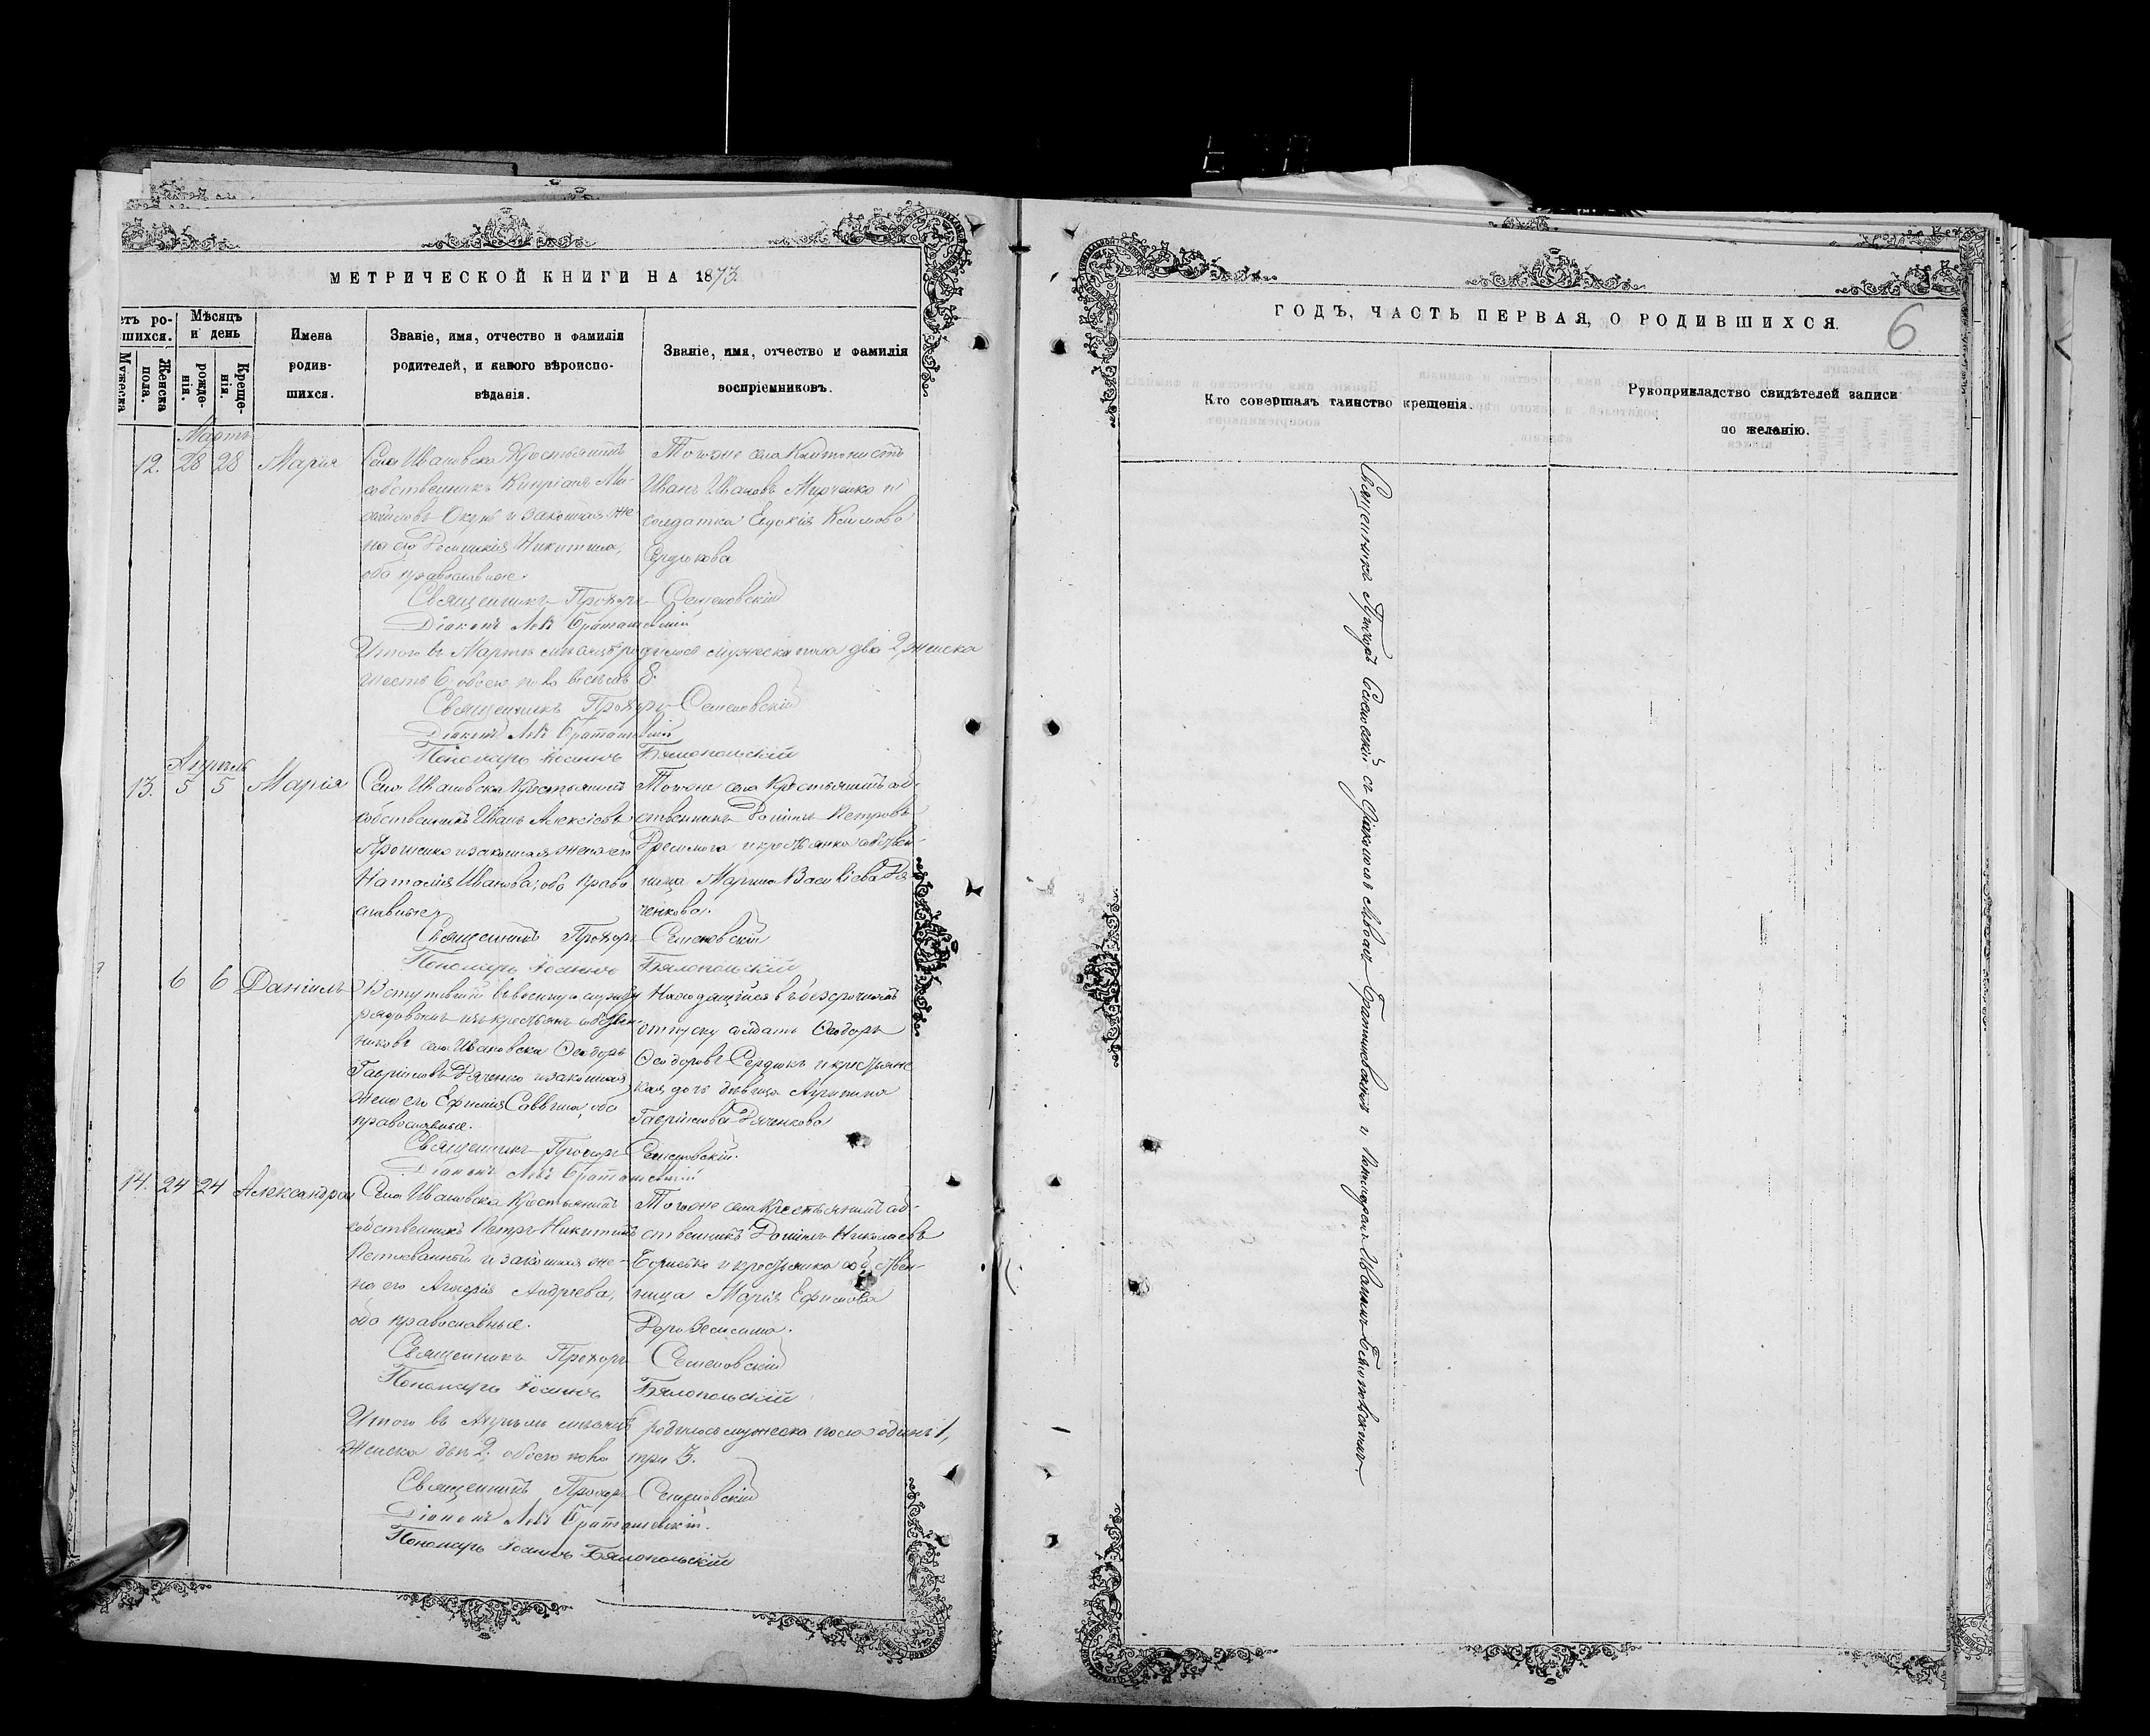 МЕТРИЧЕСКОЙ КНИГИ НА 1873.
етъ ро-
шихся.
Мужеска
Женска
пола.
Мѣсяцъ
и день
рожде-
нія.
Креще-
нія.
Имена
родив-
шихся.
Званіе, имя, отчество и фамилія
родителей, и какого вѣроиспо-
вѣданія.
Званіе, имя, отчество и фамилія
воспріемниковъ.
Мартъ
12. 28 28 Марія
Села Ивановска Крестьянинъ
собственникъ Кипріанъ Ми-
хайловъ Окунь и законная же
на его Никитина,
оба православные.
Тогоже села
Иванъ Ивановъ и
солдатка Евдокія Климова
Сердюкова
Священникъ Прохоръ Семеновскій
Діаконъ Левъ Браташевскій
Итого въ Мартѣ мѣсяцѣ родилось мужеска пола два 2, женска
шесть 6. обоего пола восемь 8.
Священникъ Прохоръ Семеновскій
Діаконъ Левъ Браташевскій
Пономарь Іоаннъ Бялопольскій
Апрѣль
13. 5 5 Марія
Села Ивановска Крестьянинъ
собственникъ Иванъ Алексіевъ
и законная жена его
Наталія Иванова, оба право
славные.
Тогоже села Крестьянинъ соб-
ственникъ Петровъ
и крестьянка собствен-
ница Василіева Дя
ченкова.
Священникъ Прохоръ Семеновскій
Пономарь Іоаннъ Бялопольскій
6 6 Даніилъ
Вступившій въ военную службу
рядовымъ изъ крестьянъ собствен-
никовъ села Ивановска Ѳеодоръ
Гавріиловъ Дяченко и законная
жена его Ефимія Саввина, оба
православные.
Находящійся въ безсрочномъ
отпуску солдатъ Ѳеодоръ
Ѳеодоровъ Сердюкъ и крестьянс
кая дочь дѣвица
Гавріилова Дяченкова
Священникъ Прохоръ Семеновскій.
Діаконъ Левъ Браташевскій
14. 24 24 Александра
Села Ивановска Крестьянинъ
собственникъ Петръ Никитинъ
и законная же-
на его Андреева,
оба православные.
Тогоже села Крестьянинъ соб-
ственникъ Николаевъ
и крестьянка собствен-
ница Марія Ефимова
Священникъ Прохоръ Семеновскій
Пономарь Іоаннъ Бялопольскій
Итого въ Апрѣлѣ мѣсяцѣ родилось мужеска пола одинъ 1,
женска двѣ 2, обоего пола три 3.
Священникъ Прохоръ Семеновскій
Діаконъ Левъ Браташевскій.
Пономарь Іоаннъ Бялопольскій
ГОДЪ, ЧАСТЬ ПЕРВАЯ, О РОДИВШИХСЯ.
6
Кто совершалъ таинство крещенія.
Рукоприкладство свидѣтелей записи
по желанію.
Священникъ Прохоръ Семеновскій съ Діакономъ Браташевскимъ и Пономаремъ Бялопольскимъ.